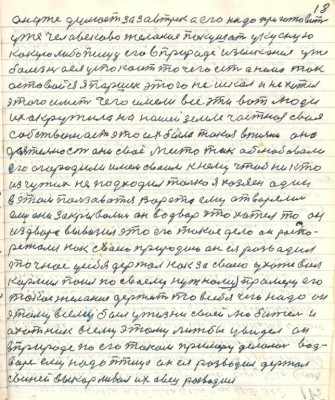 18
он уже думает за завтрак а его надо приготовить
уже человеково желание покушать укусную
какую либо пищу его в природе изыскания уже
болезнь ея упокоит то чего есть а коли так
остовайся я паршек этого не искал и не хотел
этого иметь чего имели все эти вот люди
их окружила на нашей земле частная своя
собственность это их была такая в жизни она
деятельность оно своё место так облюбовала
его огородили имен своим к нему чтобы никто
из чужих не подходил только я хозяин один
в этом пользоватся ворота ему отворели
ему они закрывали он во двор что хотел то он
из двора вывозил это его такое дело он рапо
режали как своею природою он ея розвадил
точное у себя держал как за своею ухаживал
кармил поил по своему нужному примеру его
такое желание держать то в себя чего надо он
этому всему был у жизни своей любител и
охотник всему этому лижбы увидел он
в природе по его такому примеру делалос во д
варе ему надо птицу он ея розводил держал
свиней выкармливал их овец розводил